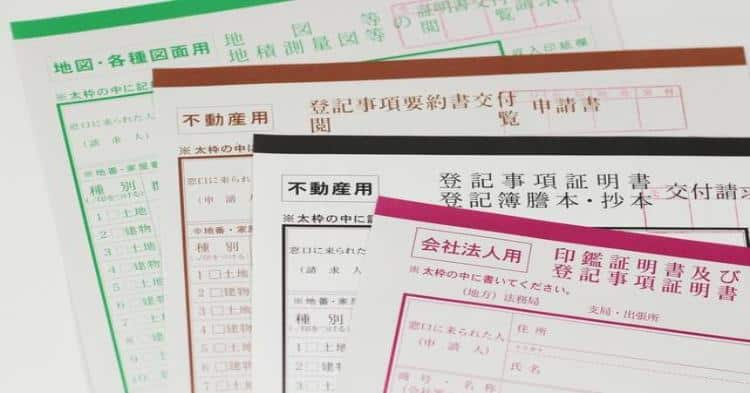 地図・各種図面用
地図等の証明書交付請求
地積測量図等の閲覧
収入印紙欄
※太枠の中に記
窓口に来られた
(請求人)
※地番・家屋番
種別
1 土地
2 建物
不動産用
登記事項要約書交付
閲覧
申請書
※太枠の中に書
窓口に来られた
(申請人)
※地番・家屋
種別
(✓印をつける)
1 □土地
2 □建物
3 □土地
4 □建物
5 □土地
6 □建物
7 □土地
8 □建物
9 □土地
不動産用
登記事項証明書
登記簿謄本・抄本
交付請
※太枠の中に記
窓口に来られた
(請求人)
※地番・家屋
種別
(✓印をつける)
1 □土地
2 □建物
3 □土地
4 □建物
会社法人用
印鑑証明書及び
登記事項証明書
※太枠の中に書いてください。
(地方)法務局 支局・出張所
窓口に来られた人
(申請人)
住所
フリガナ
氏名
商号・名称